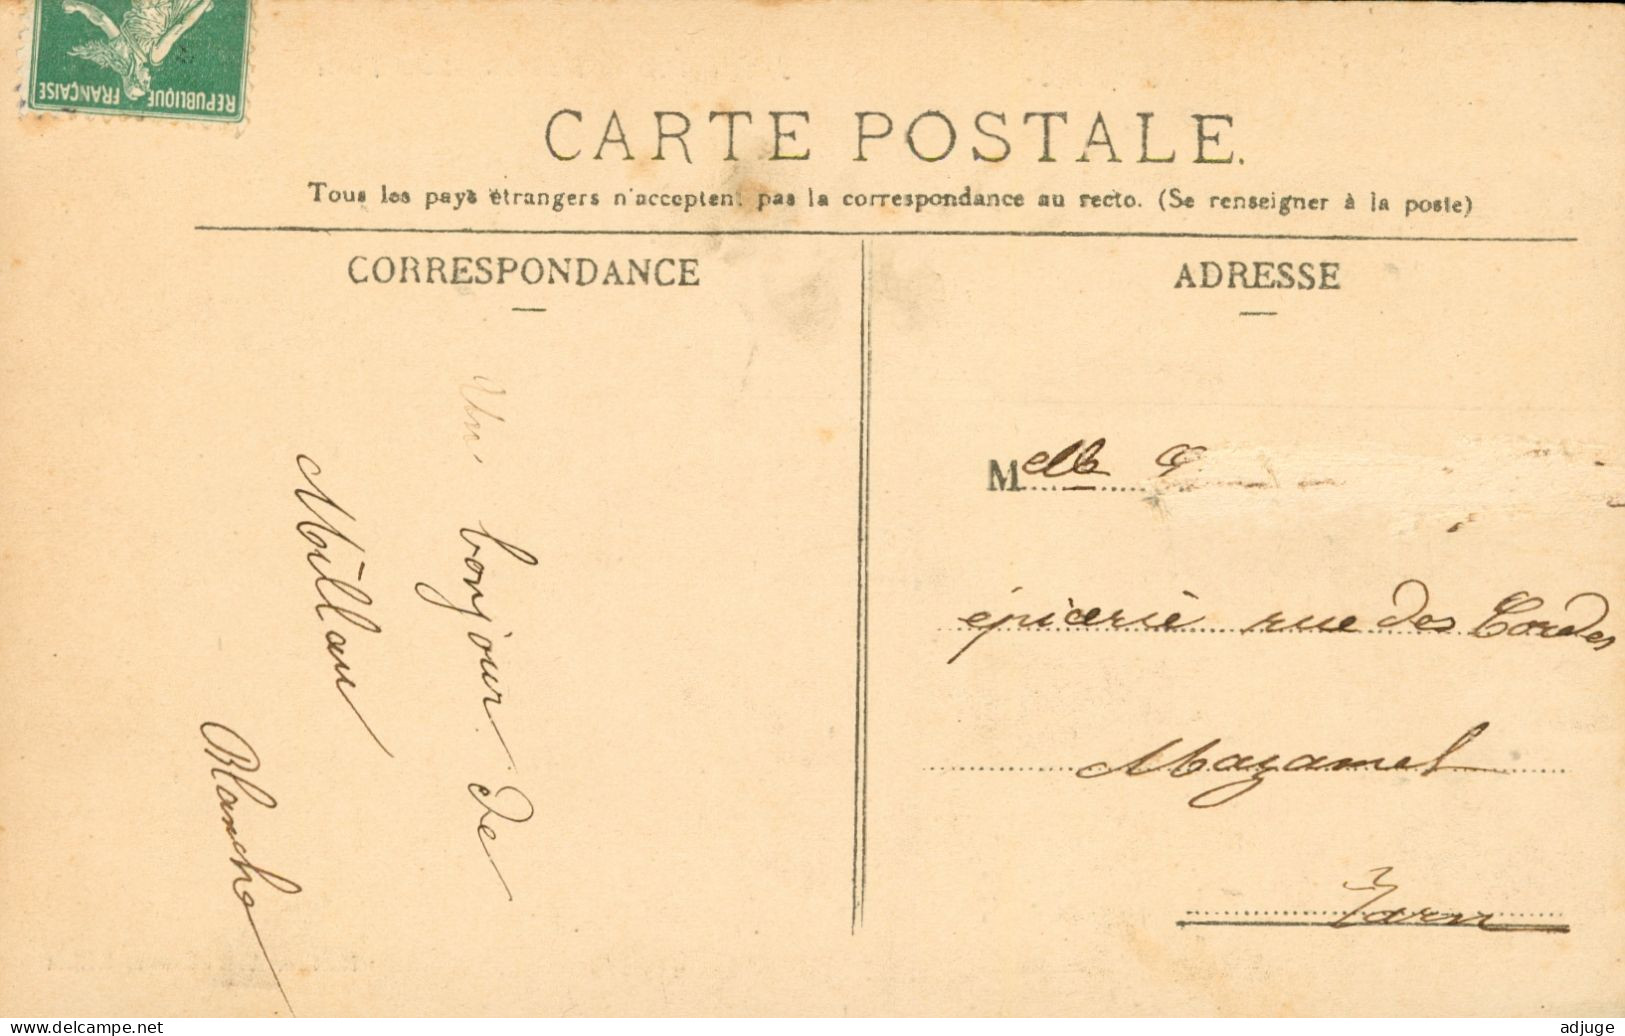 REPUBLIQUE FRANÇAISE
CARTE POSTALE.
Tous les pays étrangers n'acceptent pas la correspondance au recto. (Se renseigner à la poste)
CORRESPONDANCE
Un bonjour de
Millau
Blanche
ADRESSE
Melle
épicerie rue des Cordes
Mazamet
Tarn
www.delcampe.net
adjuge